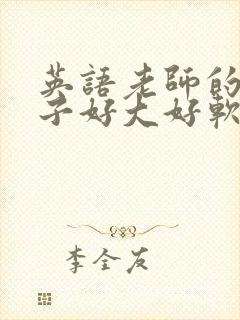 英語老師的
子好大好軟
李全友